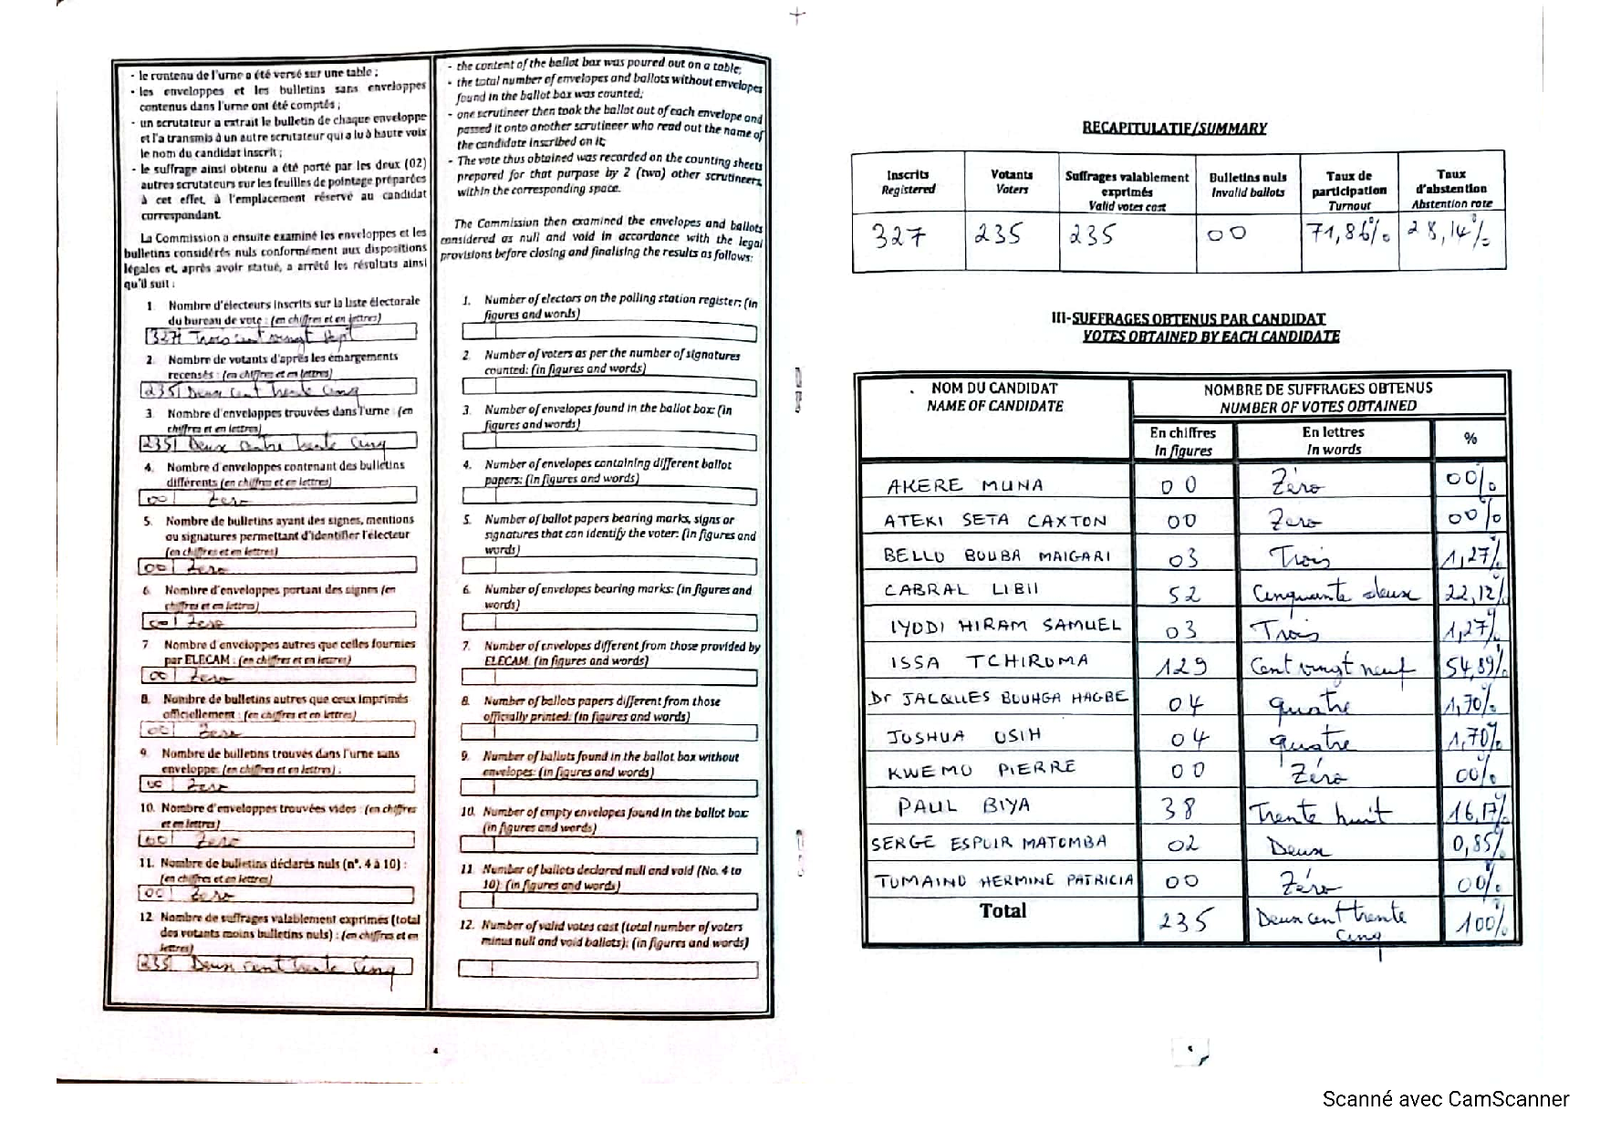 - le contenu de l'urne a été versé sur une table ;
- les enveloppes et les bulletins sans enveloppes
contenus dans l'urne ont été comptés ;
- un scrutateur a extrait le bulletin de chaque enveloppe
et l'a transmis à un autre scrutateur qui a lu à haute voix
le nom du candidat inscrit ;
- le suffrage ainsi obtenu a été porté par les deux (02)
autres scrutateurs sur les feuilles de pointage préparées
à cet effet, à l'emplacement réservé au candidat
correspondant.
La Commission a ensuite examiné les enveloppes et les
bulletins considérés nuls conformément aux dispositions
légales et, après avoir statué, a arrêté les résultats ainsi
qu'il suit :
1. Nombre d'électeurs inscrits sur la liste électorale
du bureau de vote : (en chiffres et en lettres)
327 Trois cent vingt sept
2. Nombre de votants d'après les émargements
recensés : (en chiffres et en lettres)
235 Deux cent Trente Cinq
3. Nombre d'enveloppes trouvées dans l'urne : (en
chiffres et en lettres)
235 Deux centre trente Cinq
4. Nombre d'enveloppes contenant des bulletins
différents (en chiffres et en lettres)
00 Zero
5. Nombre de bulletins ayant des signes, mentions
ou signatures permettant d'identifier l'électeur
(en chiffres et en lettres)
00 Zero
6. Nombre d'enveloppes portant des signes (en
chiffres et en lettres)
00 Zero
7 Nombre d'enveloppes autres que celles fournies
par ELECAM : (en chiffres et en lettres)
00 Zero
8. Nombre de bulletins autres que ceux imprimés
officiellement : (en chiffres et en lettres)
00 Zero
9. Nombre de bulletins trouvés dans l'urne sans
enveloppe: (en chiffres et en lettres) .
00 Zero
10. Nombre d'enveloppes trouvées vides : (en chiffres
et en lettres)
00 Zero
11. Nombre de bulletins déclarés nuls (n°. 4 à 10) :
(en chiffres et en lettres)
00 Zero
12 Nombre de suffrages valablement exprimés (total
des votants moins bulletins nuls) : (en chiffres et en
lettres)
235 Deux cent trente Cinq
- the content of the ballot box was poured out on a table;
- the total number of envelopes and ballots without envelopes
found in the ballot box was counted;
- one scrutineer then took the ballot out of each envelope and
passed it onto another scrutineer who read out the name of
the candidate inscribed on it;
- The vote thus obtained was recorded on the counting sheets
prepared for that purpose by 2 (two) other scrutineers,
within the corresponding space.
The Commission then examined the envelopes and ballots
considered as null and void in accordance with the legal
provisions before closing and finalising the results as follows:
1. Number of electors on the polling station register: (in
figures and words)
2. Number of voters as per the number of signatures
counted: (in figures and words)
3. Number of envelopes found in the ballot box: (in
figures and words)
4. Number of envelopes containing different ballot
papers: (in figures and words)
5. Number of ballot papers bearing marks, signs or
signatures that can identify the voter: (in figures and
words)
6. Number of envelopes bearing marks: (in figures and
words)
7. Number of envelopes different from those provided by
ELECAM: (in figures and words)
8. Number of ballots papers different from those
officially printed: (in figures and words)
9. Number of ballots found in the ballot box without
envelopes: (in figures and words)
10. Number of empty envelopes found in the ballot box:
(in figures and words)
11. Number of ballots declared null and void (No. 4 to
10): (in figures and words)
12. Number of valid votes cast (total number of voters
minus null and void ballots): (in figures and words)
4
RECAPITULATIF/SUMMARY
Inscrits Registered | Votants Voters | Suffrages valablement exprimés Valid votes cast | Bulletins nuls Invalid ballots | Taux de participation Turnout | Taux d'abstention Abstention rate
327 | 235 | 235 | 00 | 71,86% | 28,14%
III-SUFFRAGES OBTENUS PAR CANDIDAT
VOTES OBTAINED BY EACH CANDIDATE
NOM DU CANDIDAT NOMBRE DE SUFFRAGES OBTENUS
NAME OF CANDIDATE NUMBER OF VOTES OBTAINED
En chiffres En lettres %
In figures In words
AKERE MUNA 00 Zéro 00%
ATEKI SETA CAXTON 00 Zero 00%
BELLO BOUBA MAIGARI 03 Trois 1,27%
CABRAL LIBII 52 Cinquante deux 22,12%
IYODI HIRAM SAMUEL 03 Trois 1,27%
ISSA TCHIROMA 129 Cent vingt neuf 54,89%
Dr JACQUES BOUHGA HAGBE 04 quatre 1,70%
JOSHUA OSIH 04 quatre 1,70%
KWEMO PIERRE 00 Zéro 00%
PAUL BIYA 38 Trente huit 16,17%
SERGE ESPOIR MATOMBA 02 Deux 0,85%
TOMAINO HERMINE PATRICIA 00 Zéro 00%
Total 235 Deux cent trente cinq 100%
Scanné avec CamScanner